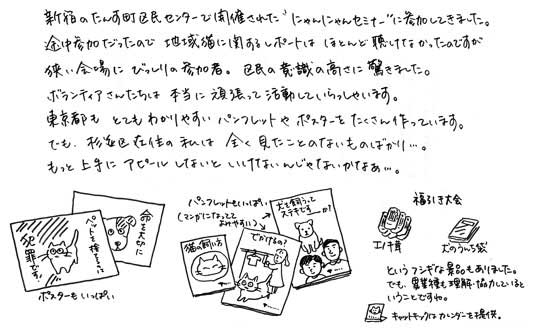 新宿のたんす町区民センターで開催された"にゃんにゃんセミナー"に参加してきました。
途中参加だったので 地域猫に関するレポートは ほとんど聴けなかったのですが
狭い会場に びっしりの参加者。区民の意識の高さに驚きました。
ボランティアさんたちは 本当に 頑張って 活動していらっしゃいます。
東京都も とてもわかりやすい パンフレットや ポスターを たくさん作っています。
でも、杉並区在住の 私は 全く見たことのないものばかり…。
もっと上手に アピールしないと いけないんじゃないかなぁ…。
命を大切に
ペットを捨てるって
犯罪です!
ポスターもいっぱい
パンフレットもいっぱい
(マンガになってて
わかりやすい)
猫の飼い方
でかけるの?
犬を飼うって
ステキです か?
福引き大会
エリンギ茸
犬のうんち袋
というフシギな景品もありました。
でも、異業種も理解・協力していると
いうことですね。
キャットキックはカレンダーを提供。